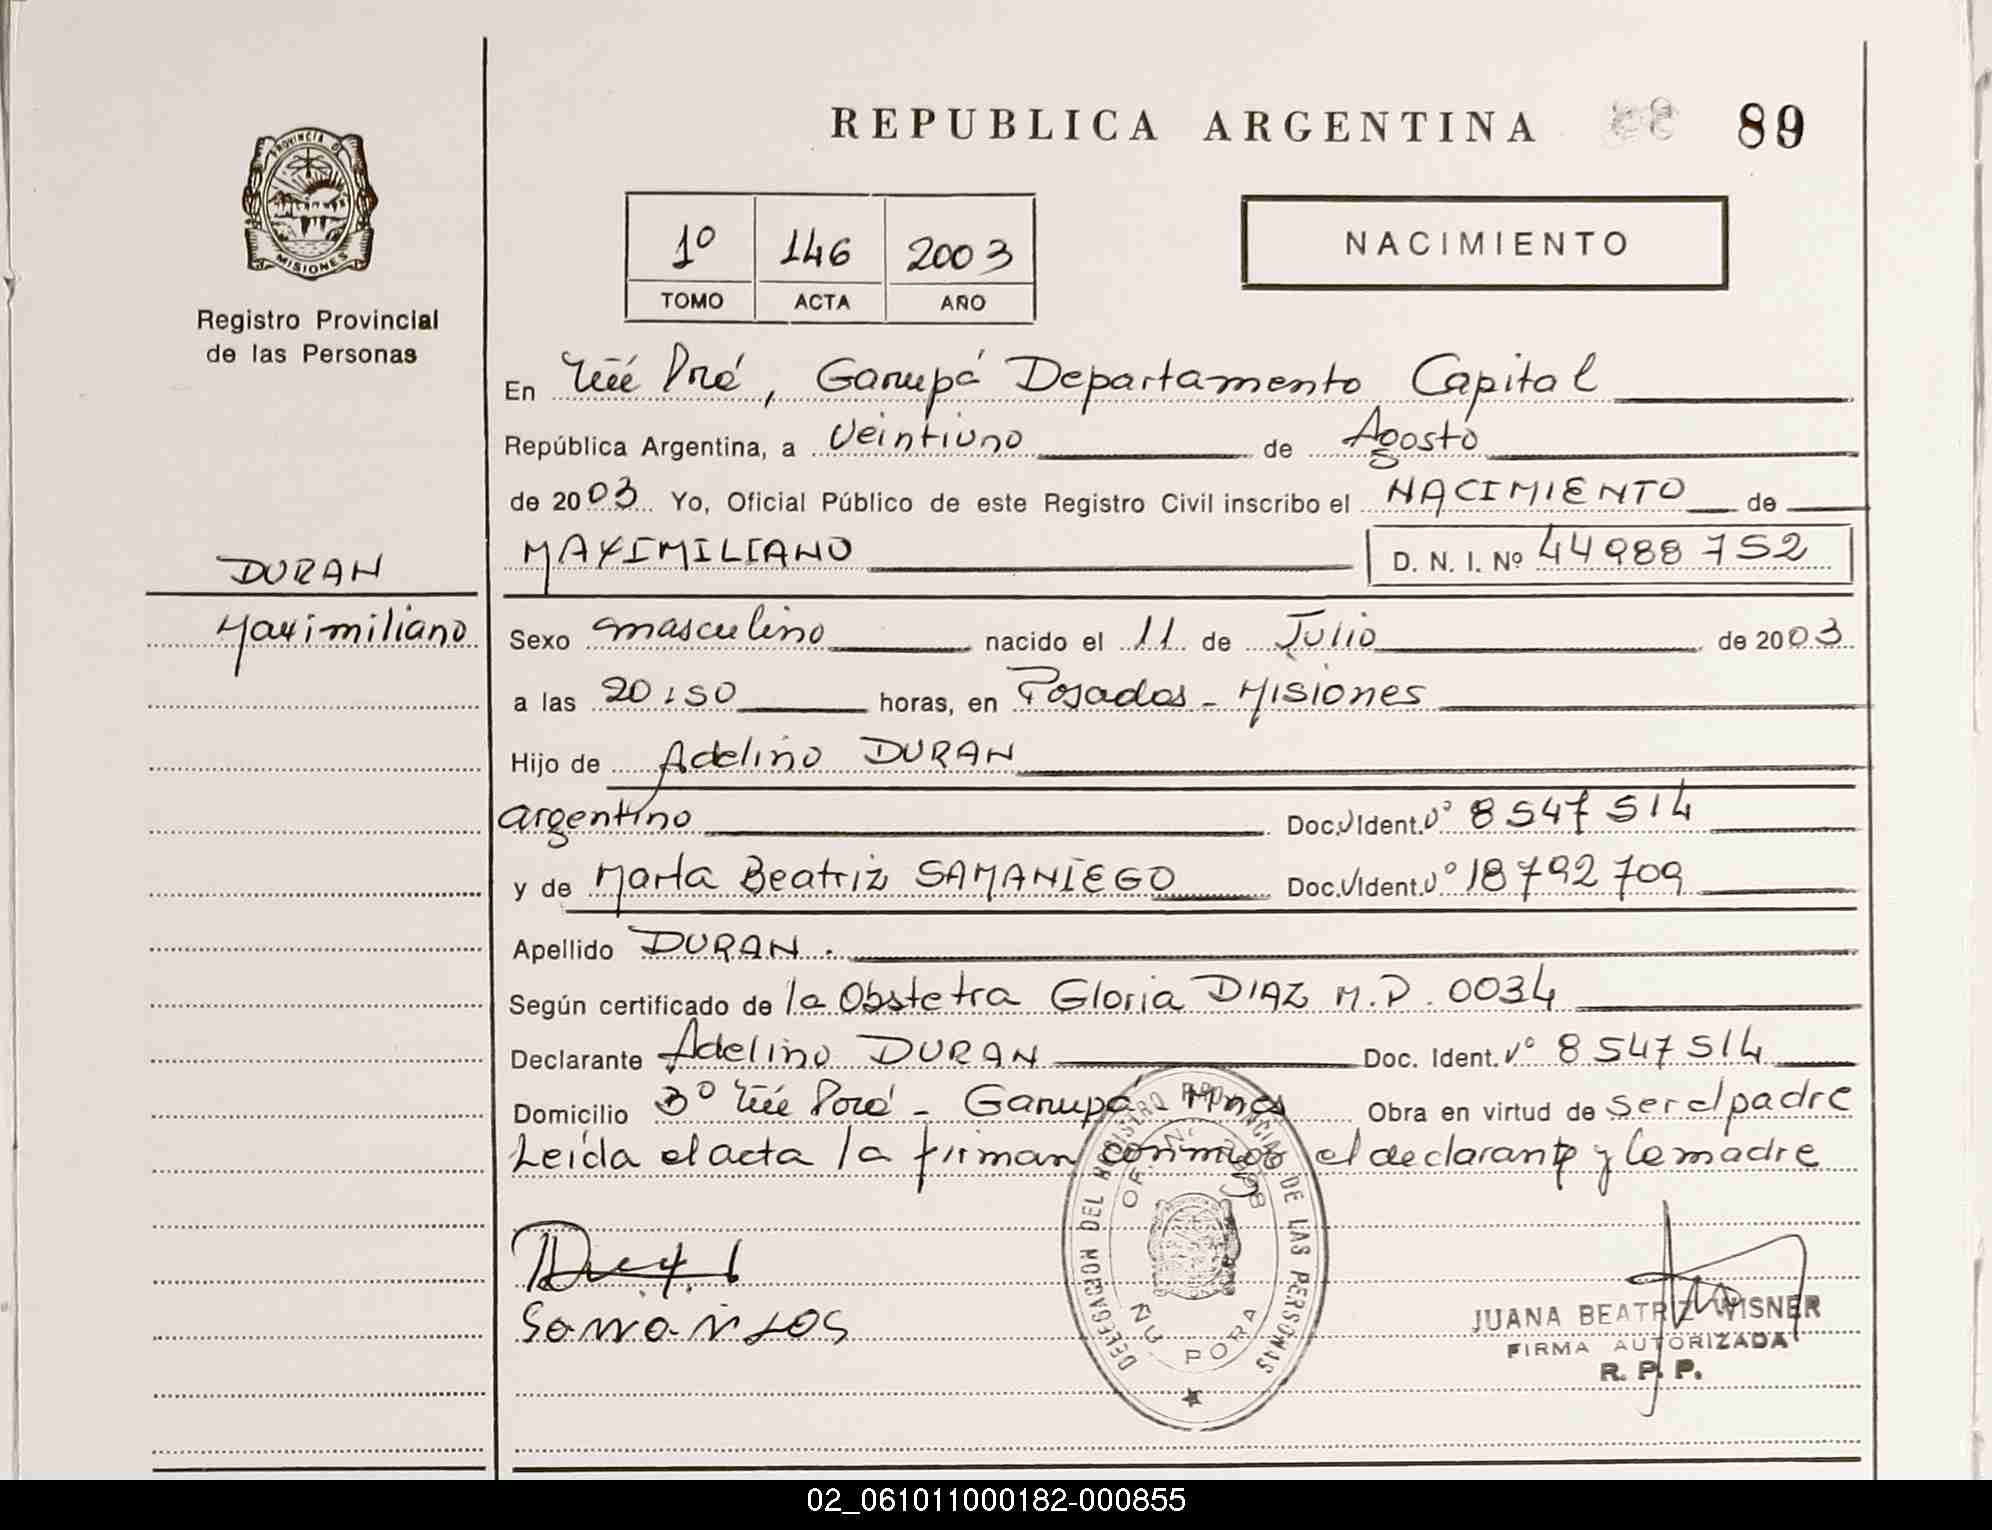 REPUBLICA ARGENTINA 89
PROVINCIA DE
MISIONES
Registro Provincial
de las Personas
1º 146 2003
TOMO ACTA AÑO
NACIMIENTO
En Garupá Departamento Capital
República Argentina, a Veintiuno de Agosto
de 2003 Yo, Oficial Público de este Registro Civil inscribo el NACIMIENTO de
MAXIMILIANO D. N. I. Nº 44988752
DURAN
Maximiliano
Sexo masculino nacido el 11 de Julio de 2003
a las 20:50 horas, en Posadas - Misiones
Hijo de Adelino DURAN
argentino Doc. Ident. Nº 8547514
y de Marta Beatriz SAMANIEGO Doc. Ident. Nº 18792709
Apellido DURAN.
Según certificado de la Obstetra Gloria DIAZ M.P. 0034
Declarante Adelino DURAN Doc. Ident. Nº 8547514
Domicilio 3º Garupá - Mnes Obra en virtud de ser el padre
Leída el acta la firman conmigo el declarante y la madre
DELEGACION DEL REGISTRO PROVINCIAL DE LAS PERSONAS
ÑU PORA
JUANA BEATRIZ WISNER
FIRMA AUTORIZADA
R. P. P.
02_061011000182-000855